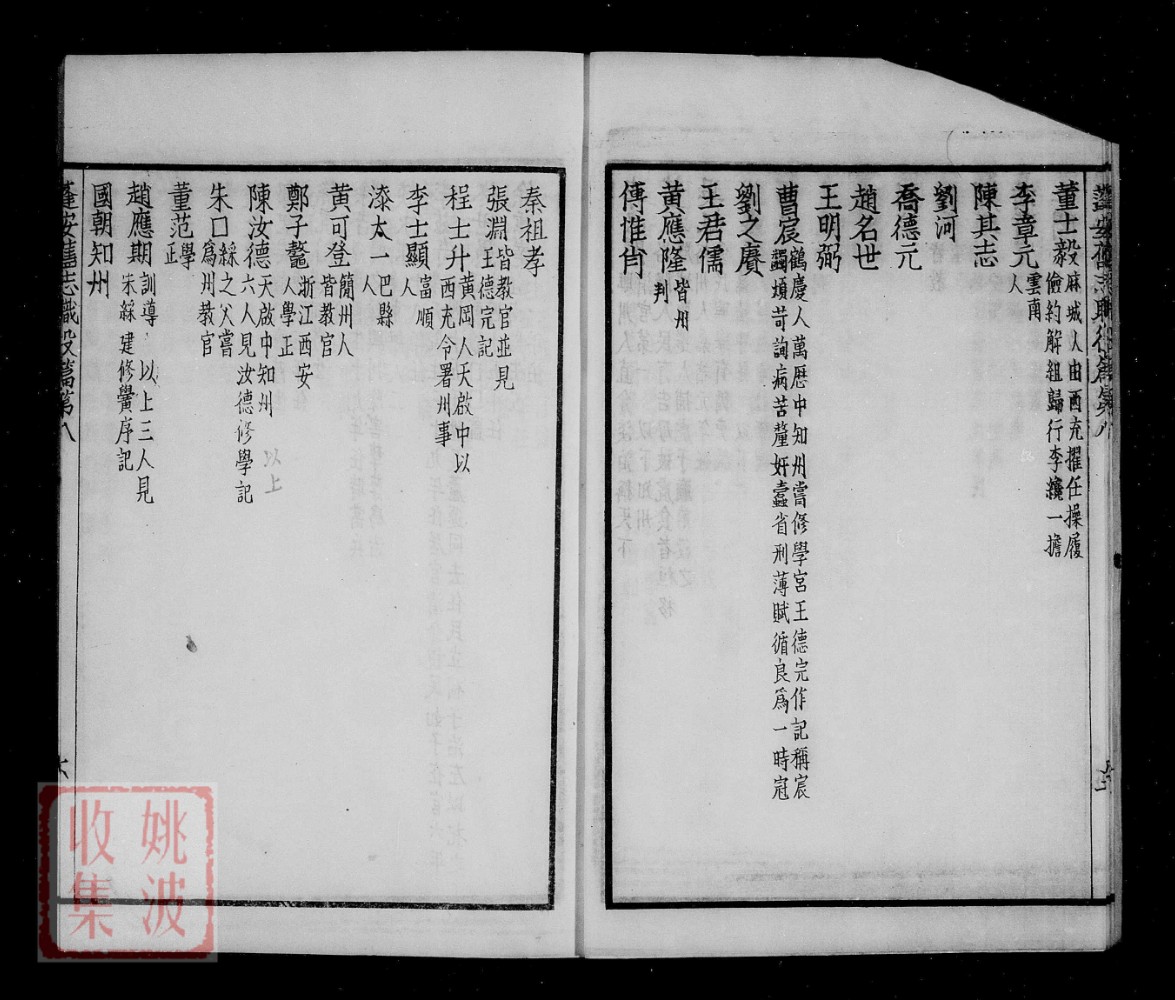 董士毅 麻城 由西充擢任操履
儉約解組歸行李擔一擔
李章元 雲南
人
陳其志
劉河
喬德元
趙名世
王明弼
曹宸 鶴慶人萬歷中知州嘗修學宮王德完作記稱宸
蠲煩苛詢病苦釐奸蠹省刑薄賦循良爲一時冠
劉之賡
王君儒
黃應隆 皆州
判
傅惟肖
秦祖孝
張淵 皆教官並見
王德完記
程士升 黃岡人天啟中以
西充令署州事
李士顯 富順
人
漆太一 巴縣
人
黃可登 簡州人
皆教官
鄭子鼇 浙江西安
人學正
陳汝德 天啟中知州 以上
六人見汝德修學記
朱口 綵之父嘗
爲州教官
董范 學
正
趙應期 訓導 以上三人見
朱綵建修黌序記
國朝知州
蓬安舊志職役篇第八
姚波
收集